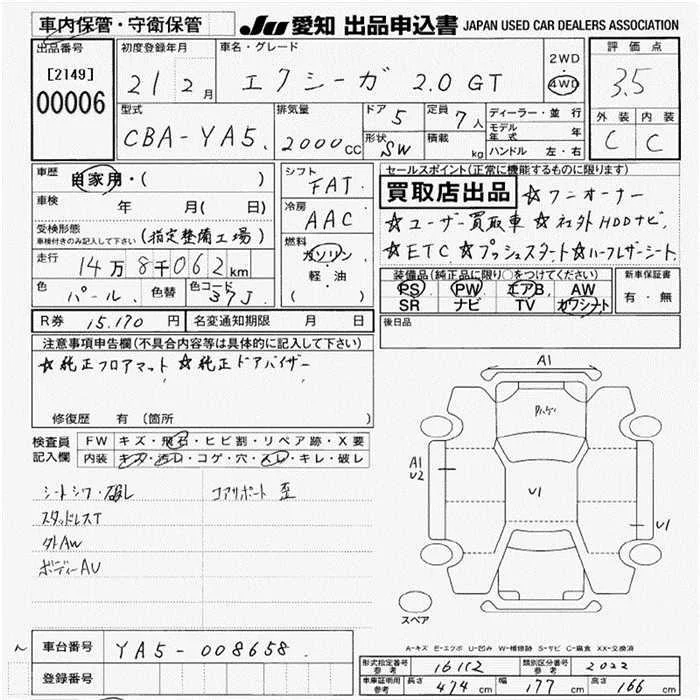 車内保管・守衛保管
JU 愛知 出品申込書 JAPAN USED CAR DEALERS ASSOCIATION
出品番号 初度登録年月 車名・グレード 2WD 評価点
[2149] 21 2月 エクシーガ 2.0 GT ・ 4WD 3.5
00006
型式 排気量 ドア 5 定員 7人 ディーラー・並行 外装 内装
CBA-YA5 2000CC 形状 SW 積載 kg モデル年式 年 C C
ハンドル 左・右
車歴 自家用・( ) シフト FAT セールスポイント(正常に機能するものに限ります)
車検 年 月( 日) 冷房 AAC 買取店出品 ☆ワンオーナー
☆ユーザー買取車 ☆社外HDDナビ
受検形態 車検付きのみ記入して下さい (指定整備工場) 燃料 ガソリン・軽・油 ( ) ☆ETC ☆プッシュスタート☆ハーフレザーシート
走行 14万8千062km 装備品(純正品に限り○をつけてください) 新車保証書
色 パール 色替 色コード 37J PS PW エアB AW 有・無
SR ナビ TV カワシート
R券 15,170円 名変通知期限 月 日 後日品
注意事項申告欄(不具合内容等は具体的に記入して下さい)
☆純正フロアマット ☆純正ドアバイザー
修復歴 有 (箇所 )
検査員記入欄 FW キズ・飛石・ヒビ割・リペア跡・X要
内装 キズ・汚レ・コゲ・穴・スレ・キレ・破レ
シートシワ・破レ コアサポート
スタッドレスT
外AW
ボディーAU
A1
A1
U2
U1
U1
スペア
A-キズ E-エクボ U-凹み W-補修跡 S-サビ C-腐食 XX-交換済
車台番号 YA5-008658 形式指定番号 参考 16112 類別区分番号 参考 2022
登録番号 車庫証明用 参考 長さ 474cm 幅 177cm 高さ 166cm